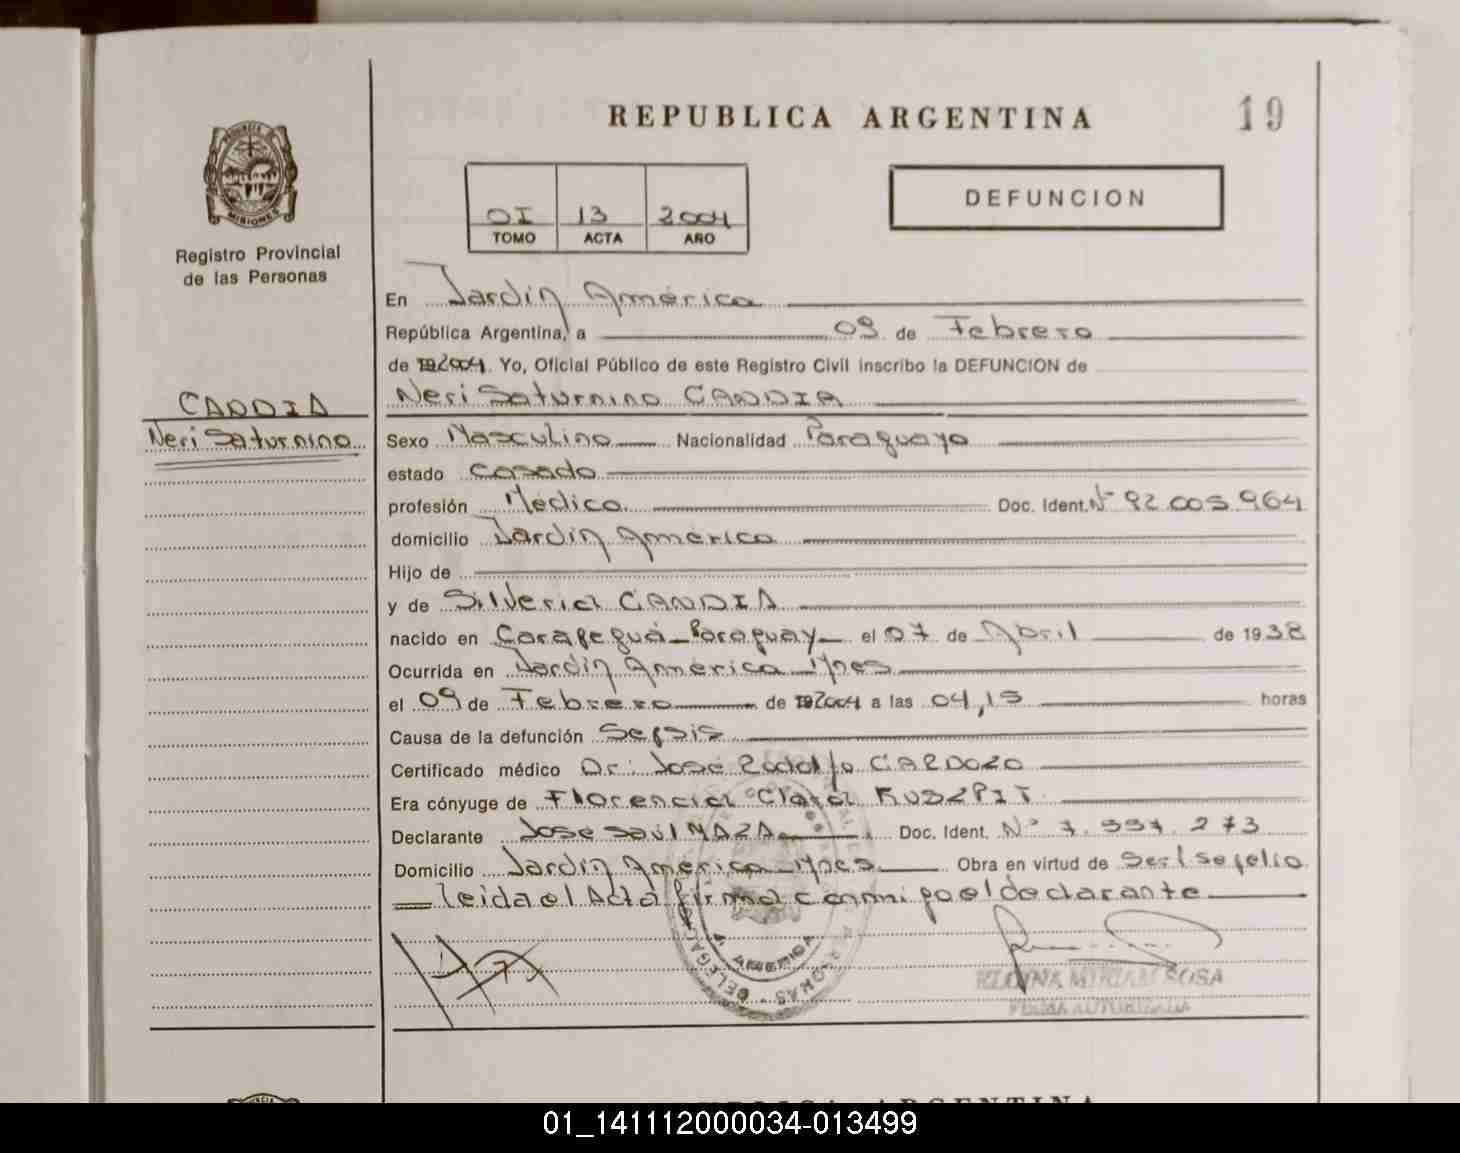 REPUBLICA ARGENTINA
19
PROVINCIA DE MISIONES
Registro Provincial
de las Personas
OI 13 2004
TOMO ACTA AÑO
DEFUNCION
En Jardín América
República Argentina, a 09 de Febrero
de 2004. Yo, Oficial Público de este Registro Civil inscribo la DEFUNCION de
Neri Saturnino CANDIA
CANDIA
Neri Saturnino
Sexo Masculino Nacionalidad Paraguaya
estado Casado
profesión Médico Doc. Ident. Nº 92.005.964
domicilio Jardín América
Hijo de
y de Silveria CANDIA
nacido en Carapeguá_Paraguay_ el 07 de Abril de 1938
Ocurrida en Jardín América_Mnes
el 09 de Febrero de 2004 a las 04,15 horas
Causa de la defunción Sepsis
Certificado médico Dr: José Rodolfo CARDOZO
Era cónyuge de Florencia Clara
Declarante José Saúl MAZA Doc. Ident. Nº 7.557.273
Domicilio Jardín América_Mnes Obra en virtud de Serlsepelio
leida el Acta firma conmigo el declarante
AMERICA
MIRIAM ROSA
01_141112000034-013499